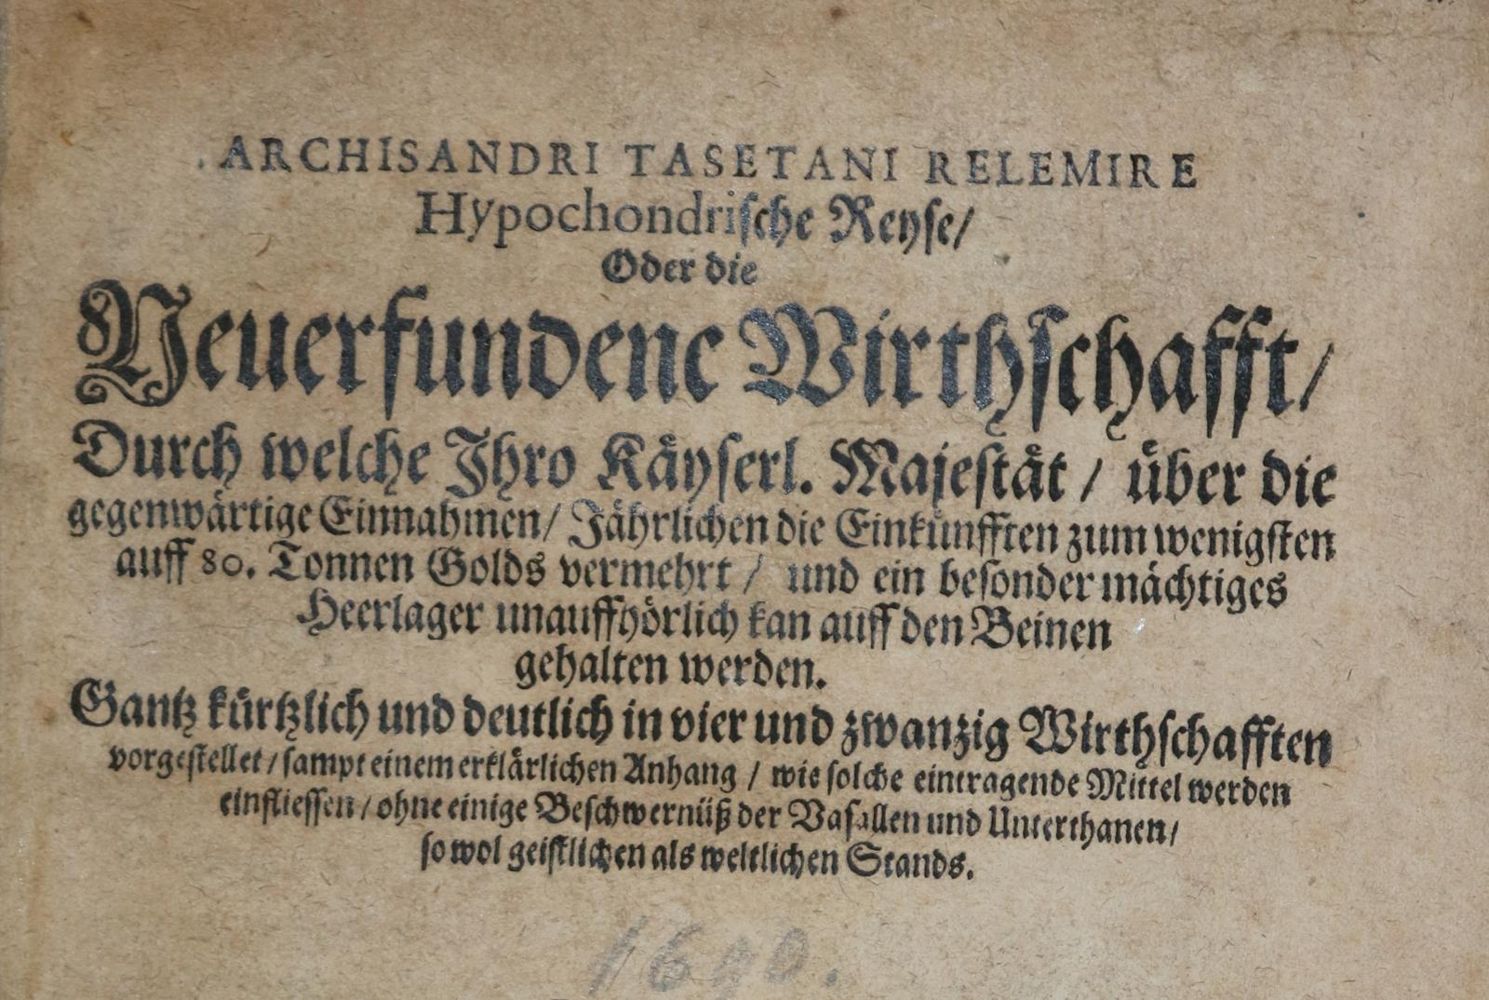 ARCHISANDRI TASETANI RELEMIRE
Hypochondrische Reyse/
Oder die
Neuerfundene Wirthschafft/
Durch welche Ihro Käyserl. Majestät/ über die
gegenwärtige Einnahmen/ Jährlichen die Einkünfften zum wenigsten
auff 80. Tonnen Golds vermehrt/ und ein besonder mächtiges
Heerlager unauffhörlich kan auff den Beinen
gehalten werden.
Gantz kürtzlich und deutlich in vier und zwanzig Wirthschafften
vorgestellet/ sampt einem erklärlichen Anhang/ wie solche eintragende Mittel werden
einfliessen/ ohne einige Beschwernüß der Vasallen und Unterthanen/
so wol geistlichen als weltlichen Stands.
1690.